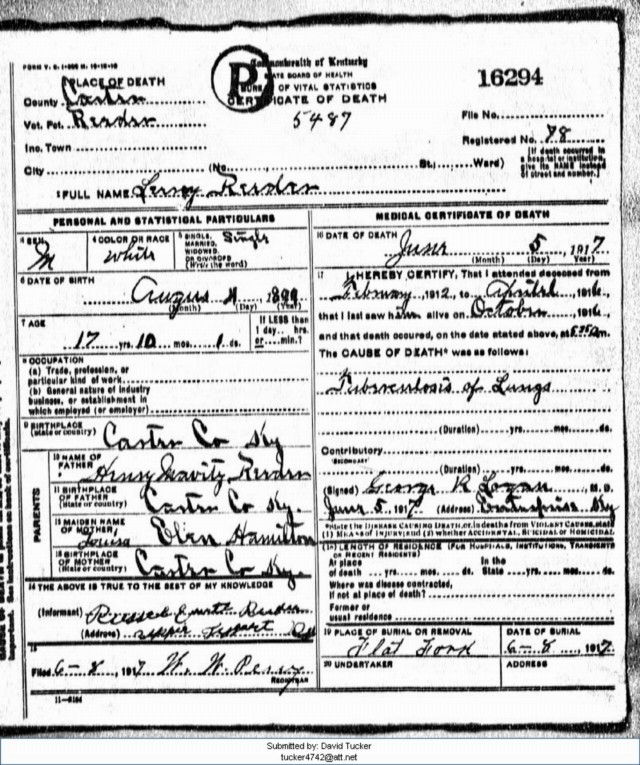 FORM V. S. 1-
Commonwealth of Kentucky
STATE BOARD OF HEALTH
BUREAU OF VITAL STATISTICS
CERTIFICATE OF DEATH
P
16294
5487
PLACE OF DEATH
County Carter
Vot. Pct. Reeder
Inc. Town
City (No. St.; Ward)
File No.
Registered No. 78
[If death occurred in a hospital or institution, give its NAME instead of street and number.]
2 FULL NAME Leroy Reeder
PERSONAL AND STATISTICAL PARTICULARS
3 SEX M
4 COLOR OR RACE White
5 SINGLE, MARRIED, WIDOWED OR DIVORCED (Write the word) Single
6 DATE OF BIRTH
Augus 4, 1899
(Month) (Day) (Year)
7 AGE
17 yrs. 10 mos. 1 ds.
If LESS than 1 day.. hrs. or....min.?
8 OCCUPATION
(a) Trade, profession, or particular kind of work
(b) General nature of industry business, or establishment in which employed (or employer)
9 BIRTHPLACE (State or country) Carter Co Ky
PARENTS
10 NAME OF FATHER Henry Reeder
11 BIRTHPLACE OF FATHER (State or country) Carter Co Ky.
12 MAIDEN NAME OF MOTHER Louisa Ellen Hamilton
13 BIRTHPLACE OF MOTHER (State or country) Carter Co Ky.
14 THE ABOVE IS TRUE TO THE BEST OF MY KNOWLEDGE
(Informant) Reeder
(Address) upper Tygart
15
Filed 6-8, 1917 W. W. Perry
REGISTRAR
11-5164
MEDICAL CERTIFICATE OF DEATH
16 DATE OF DEATH
June 5, 1917
(Month) (Day) (Year)
17 I HEREBY CERTIFY, That I attended deceased from
February, 1912, to April, 1916,
that I last saw him alive on October, 1916,
and that death occured, on the date stated above, at m.
The CAUSE OF DEATH* was as follows:
Tuberculosis of Lungs
(Duration) yrs. mos. ds.
Contributory
(SECONDARY)
(Duration) yrs. mos. ds.
(Signed) George R Logan, M. D.
June 5, 1917 (Address) Enterprise Ky
*State the DISEASE CAUSING DEATH, or, in deaths from VIOLENT CAUSES, state (1) MEANS OF INJURY; and (2) whether ACCIDENTAL, SUICIDAL OR HOMICIDAL
18 LENGTH OF RESIDENCE (FOR HOSPITALS, INSTITUTIONS, TRANSIENTS OR RECENT RESIDENTS)
At place of death yrs. mos. ds. In the State yrs. mos. ds.
Where was disease contracted, if not at place of death?
Former or usual residence
19 PLACE OF BURIAL OR REMOVAL
Flat Fork
DATE OF BURIAL
6-8, 1917.
20 UNDERTAKER
ADDRESS
Submitted by: David Tucker
tucker4742@att.net